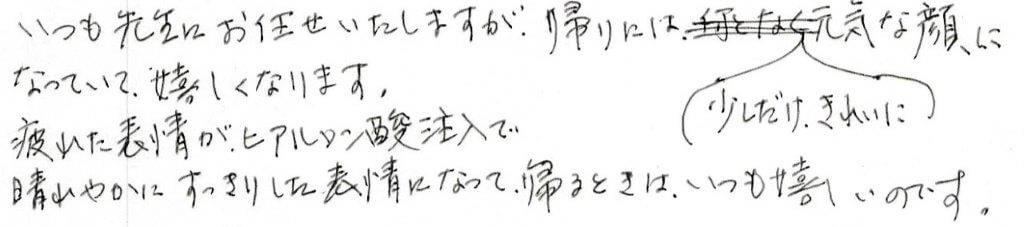 いつも先生にお任せいたしますが、帰りには、何となく元気な顔、に
なっていて、嬉しくなります。
(少しだけ、きれいに)
疲れた表情が、ヒアルロン酸注入で
晴れやかにすっきりした表情になって、帰るときは、いつも嬉しいのです。